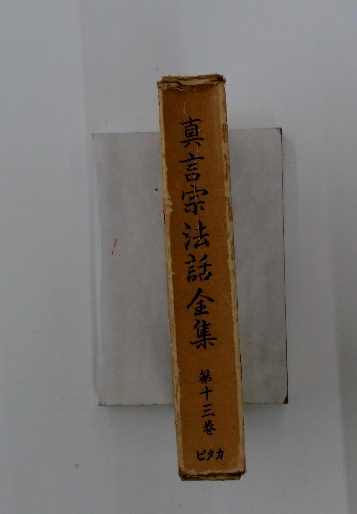 真言宗法話全集
第十三巻
ピタカ